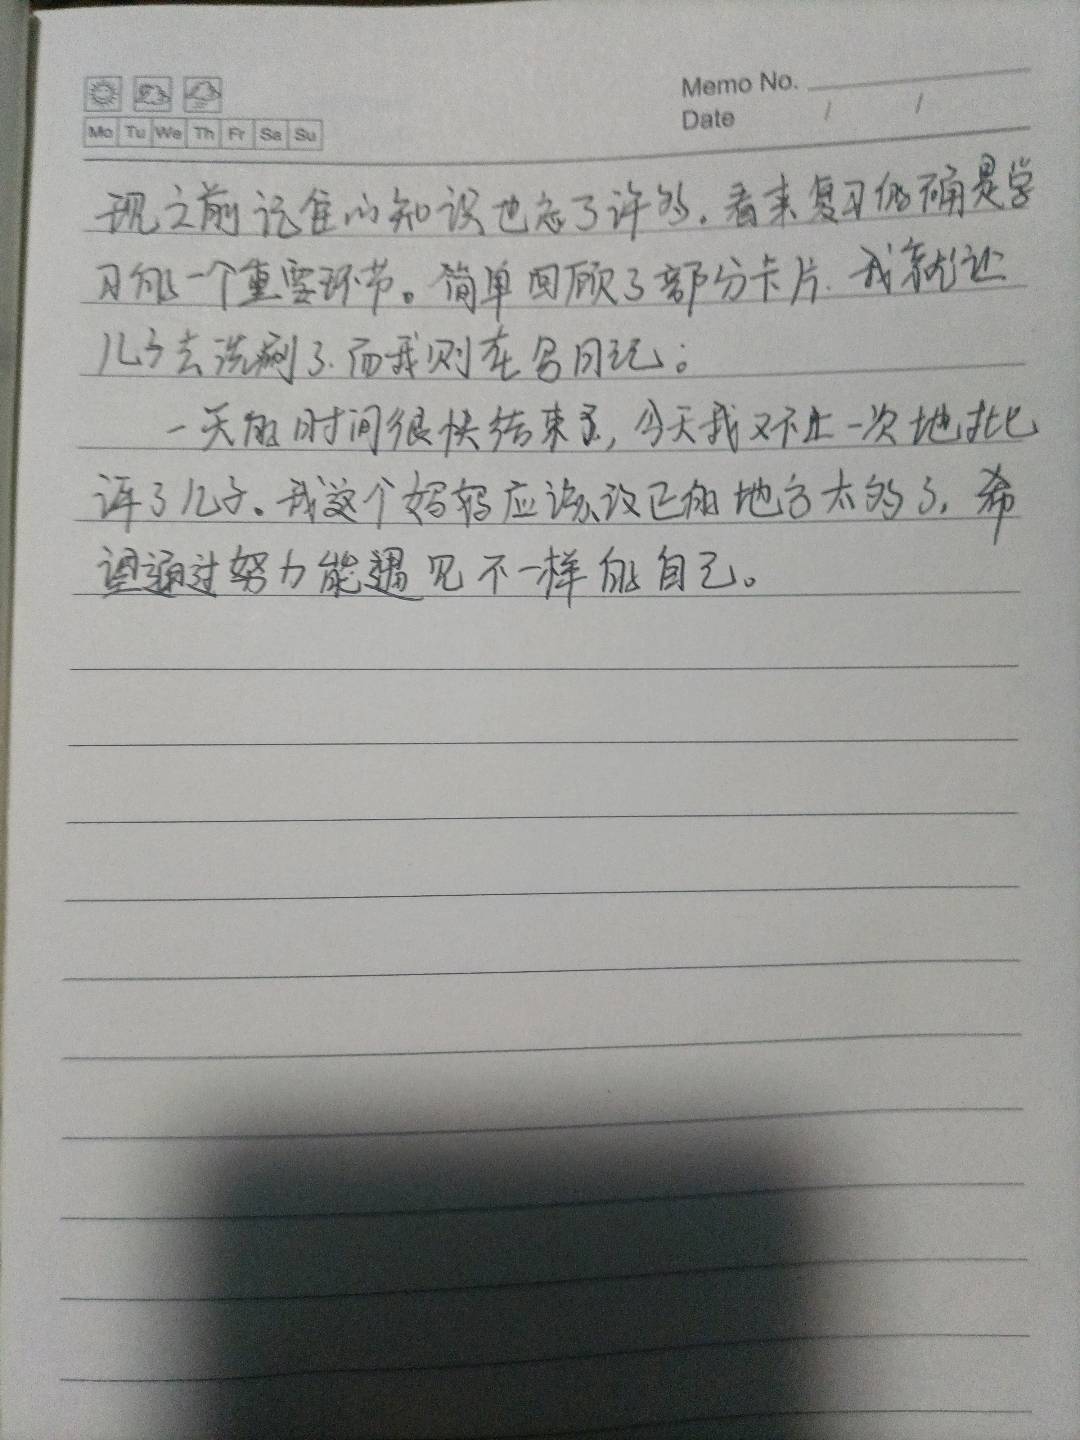 Memo No.
Date / /
Mo Tu We Th Fr Sa Su
现之前记住的知识也忘了许多，看来复习的确是学
习的一个重要环节。简单回顾了部分卡片，我就让
儿子去洗刷了，而我则在写日记；
一天的时间很快结束了，今天我又不止一次地批
评了儿子。我这个妈妈应该改正的地方太多了，希
望通过努力能遇见不一样的自己。